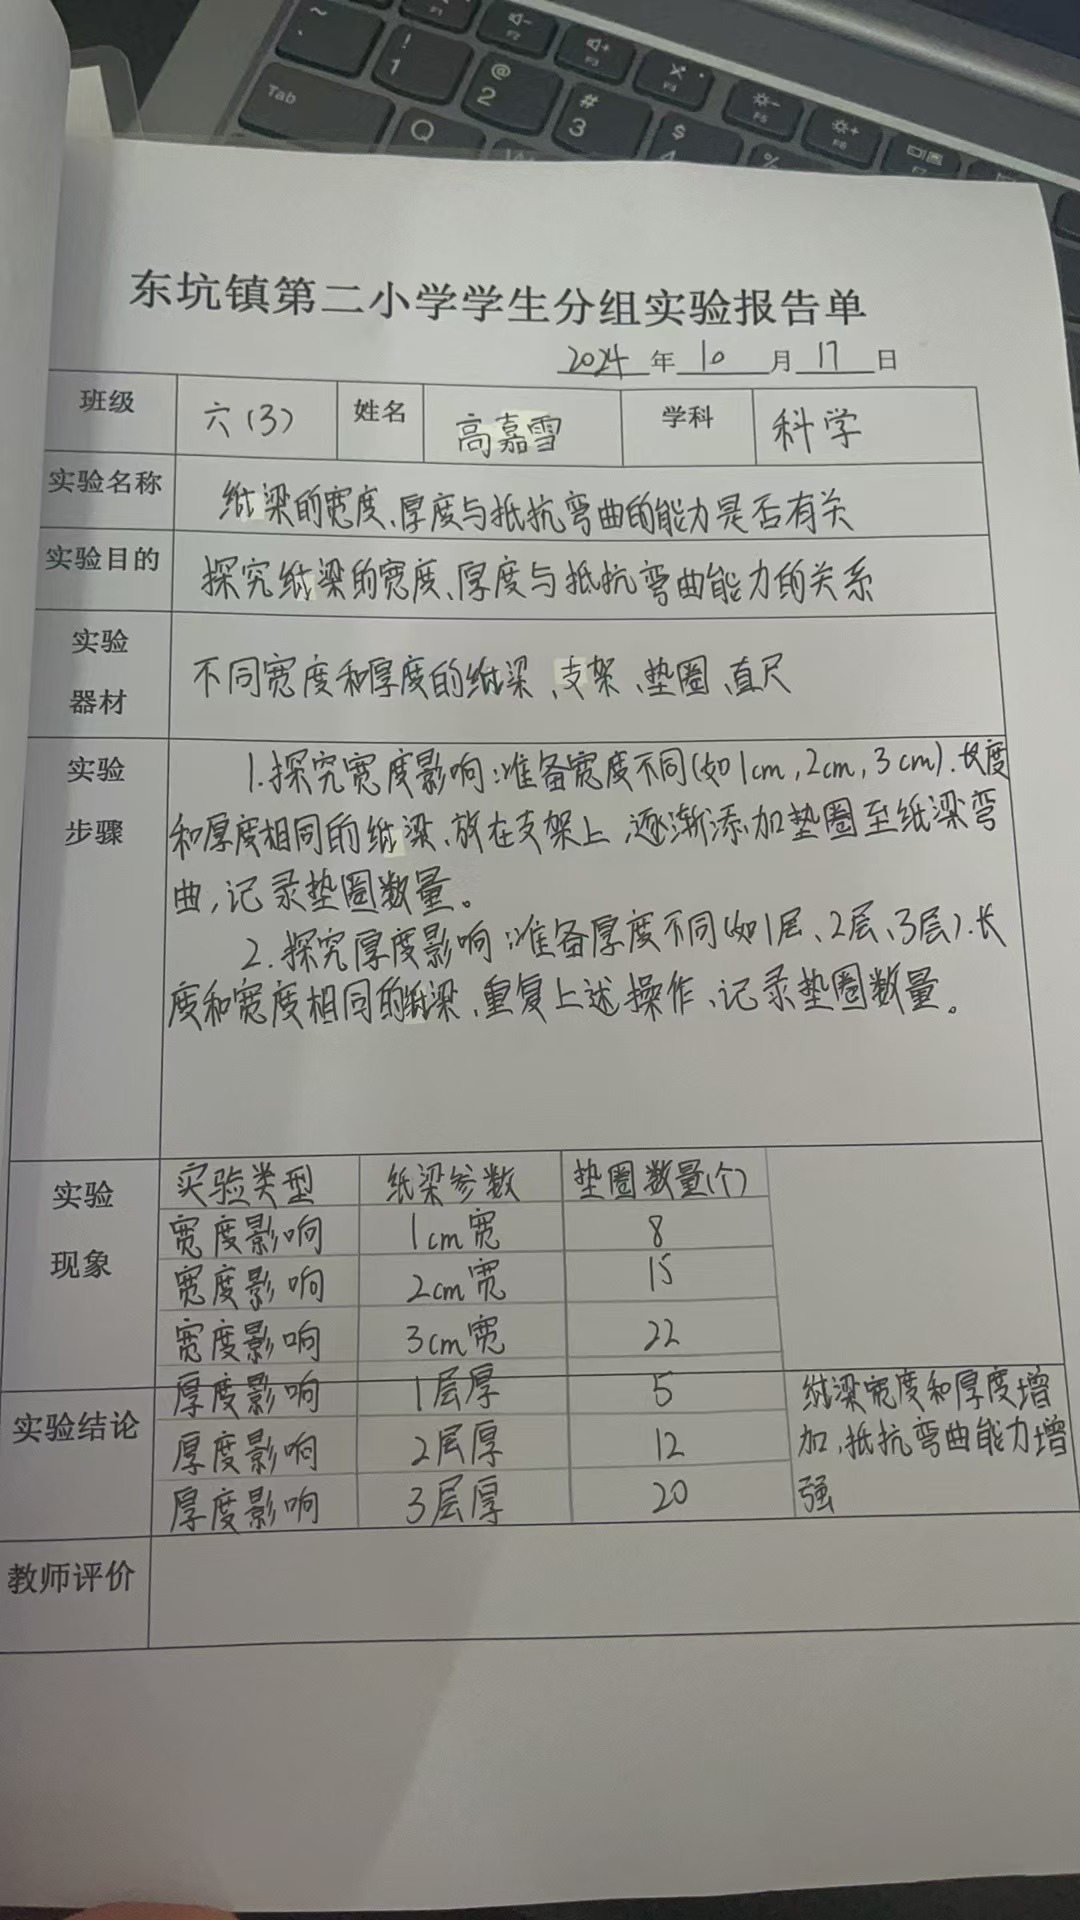 ~
!
1
@
2
#
3
$
F1
F2
F3
F4
F5
F6
Tab
Q
东坑镇第二小学学生分组实验报告单
2024年10月17日
班级 六(3) 姓名 高嘉雪 学科 科学
实验名称 纸梁的宽度、厚度与抵抗弯曲的能力是否有关
实验目的 探究纸梁的宽度、厚度与抵抗弯曲能力的关系
实验
器材 不同宽度和厚度的纸梁、支架、垫圈、直尺
实验 1.探究宽度影响:准备宽度不同(如1cm,2cm,3cm)、长度
步骤 和厚度相同的纸梁、放在支架上,逐渐添加垫圈至纸梁弯
曲,记录垫圈数量。
2.探究厚度影响:准备厚度不同(如1层、2层、3层)、长
度和宽度相同的纸梁、重复上述操作、记录垫圈数量。
实验 实验类型 纸梁参数 垫圈数量(个)
现象 宽度影响 1cm宽 8
宽度影响 2cm宽 15
宽度影响 3cm宽 22
厚度影响 1层厚 5
实验结论 厚度影响 2层厚 12
厚度影响 3层厚 20
纸梁宽度和厚度增
加,抵抗弯曲能力增
强
教师评价